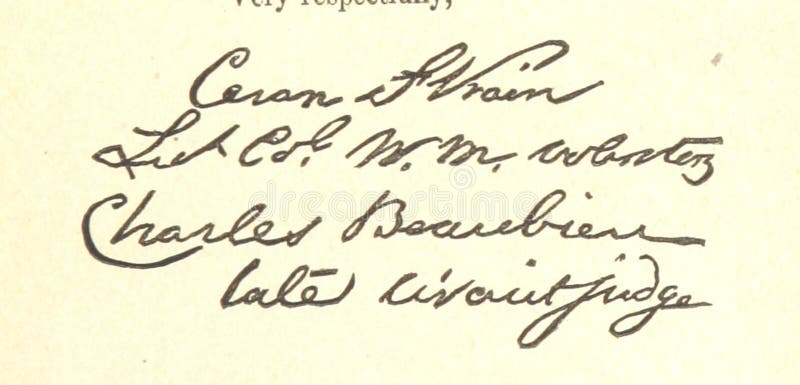 Very respectfully,
Ceran St Vrain
Liut Col. W. M. volenters
Charles Beaubien
late circuit judge
dreamstime